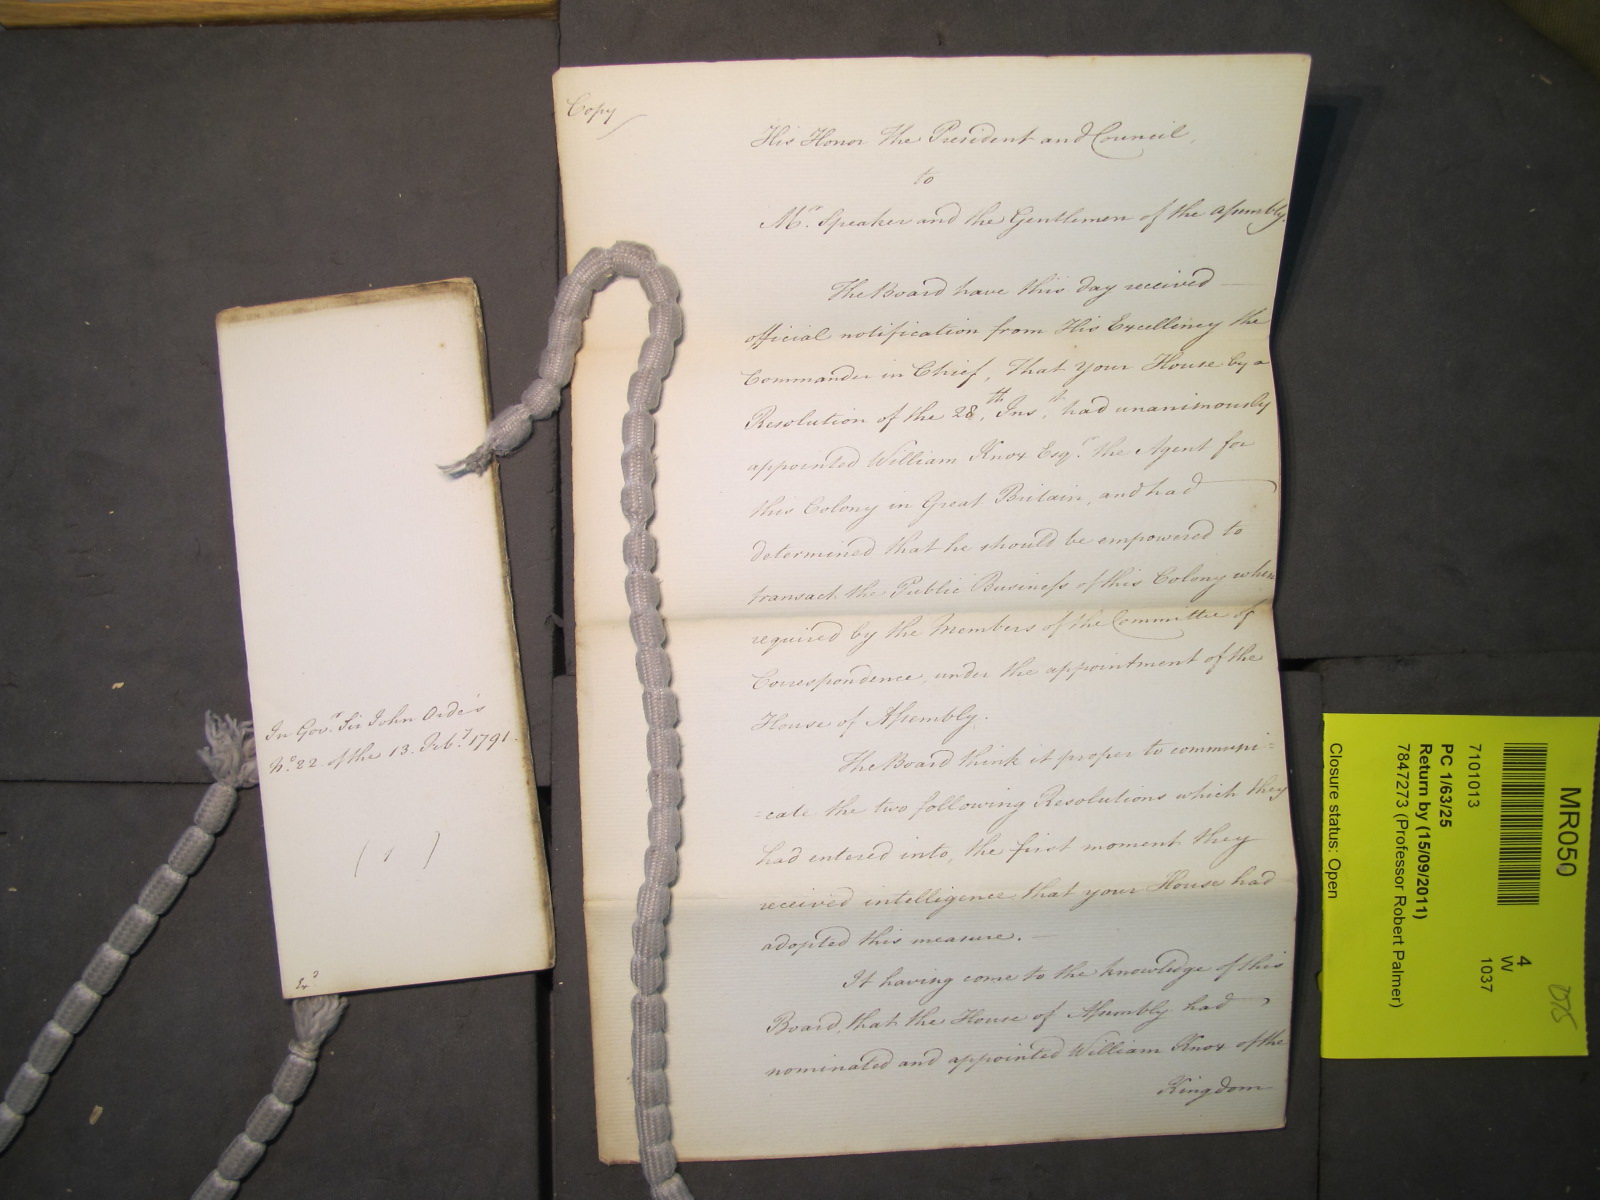 In Gov.r Sir John Orde's
N.o 22. of the 13. Feb.y 1791.
(1)
Copy
His Honor the President and Council,
to
M.r Speaker and the Gentlemen of the Assembly.
The Board have this day received
official notification from His Excellency the
Commander in Chief, That your House by a
Resolution of the 28.th Ins.t had unanimously
appointed William Knox Esq.r the Agent for
this Colony in Great Britain, and had
determined that he should be empowered to
transact the Public Business of this Colony when
required by the Members of the Committee of
Correspondence, under the appointment of the
House of Assembly.
The Board think it proper to communi=
=cate the two following Resolutions which they
had entered into, the first moment they
received intelligence that your House had
adopted this measure. —
It having come to the knowledge of this
Board, that the House of Assembly had
nominated and appointed William Knox of the
Kingdom
MR050
4
W
1037
7101013
PC 1/63/25
Return by (15/09/2011)
7847273 (Professor Robert Palmer)
Closure status: Open